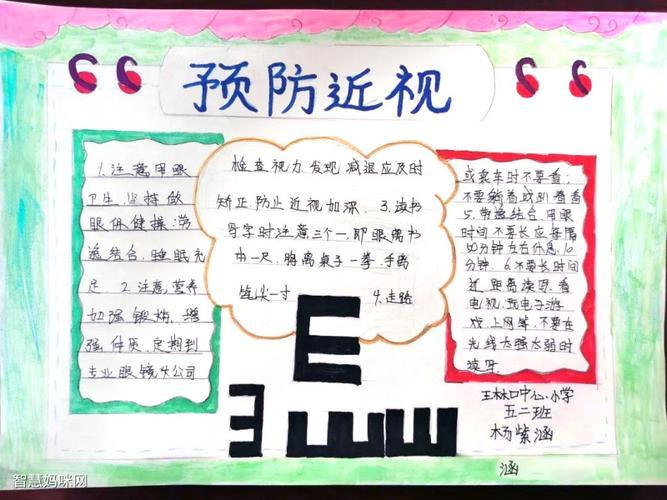 预防近视
1.注意用眼
卫生,坚持做
眼保健操.劳
逸结合,睡眠充
足 2.注意,营养
加强锻炼,增
强体质.定期到
专业眼镜公司
检查视力.发现减退应及时
矫正.防止近视加深. 3.读书
写字时注意三个一,即眼离书
本一尺.胸离桌子一拳.手离
笔尖一寸 4.走路
或乘车时不要看;
不要躺着或趴着看
5.劳逸结合.用眼
时间不要长应每隔
50分钟左右休息10
分钟. 6.不要长时间
近距离读写.看
电视,玩电子游
戏.上网等,不要在
光线太强太弱时
读写.
E
林口中心小学
五二班
杨紫涵
涵
智慧妈咪网